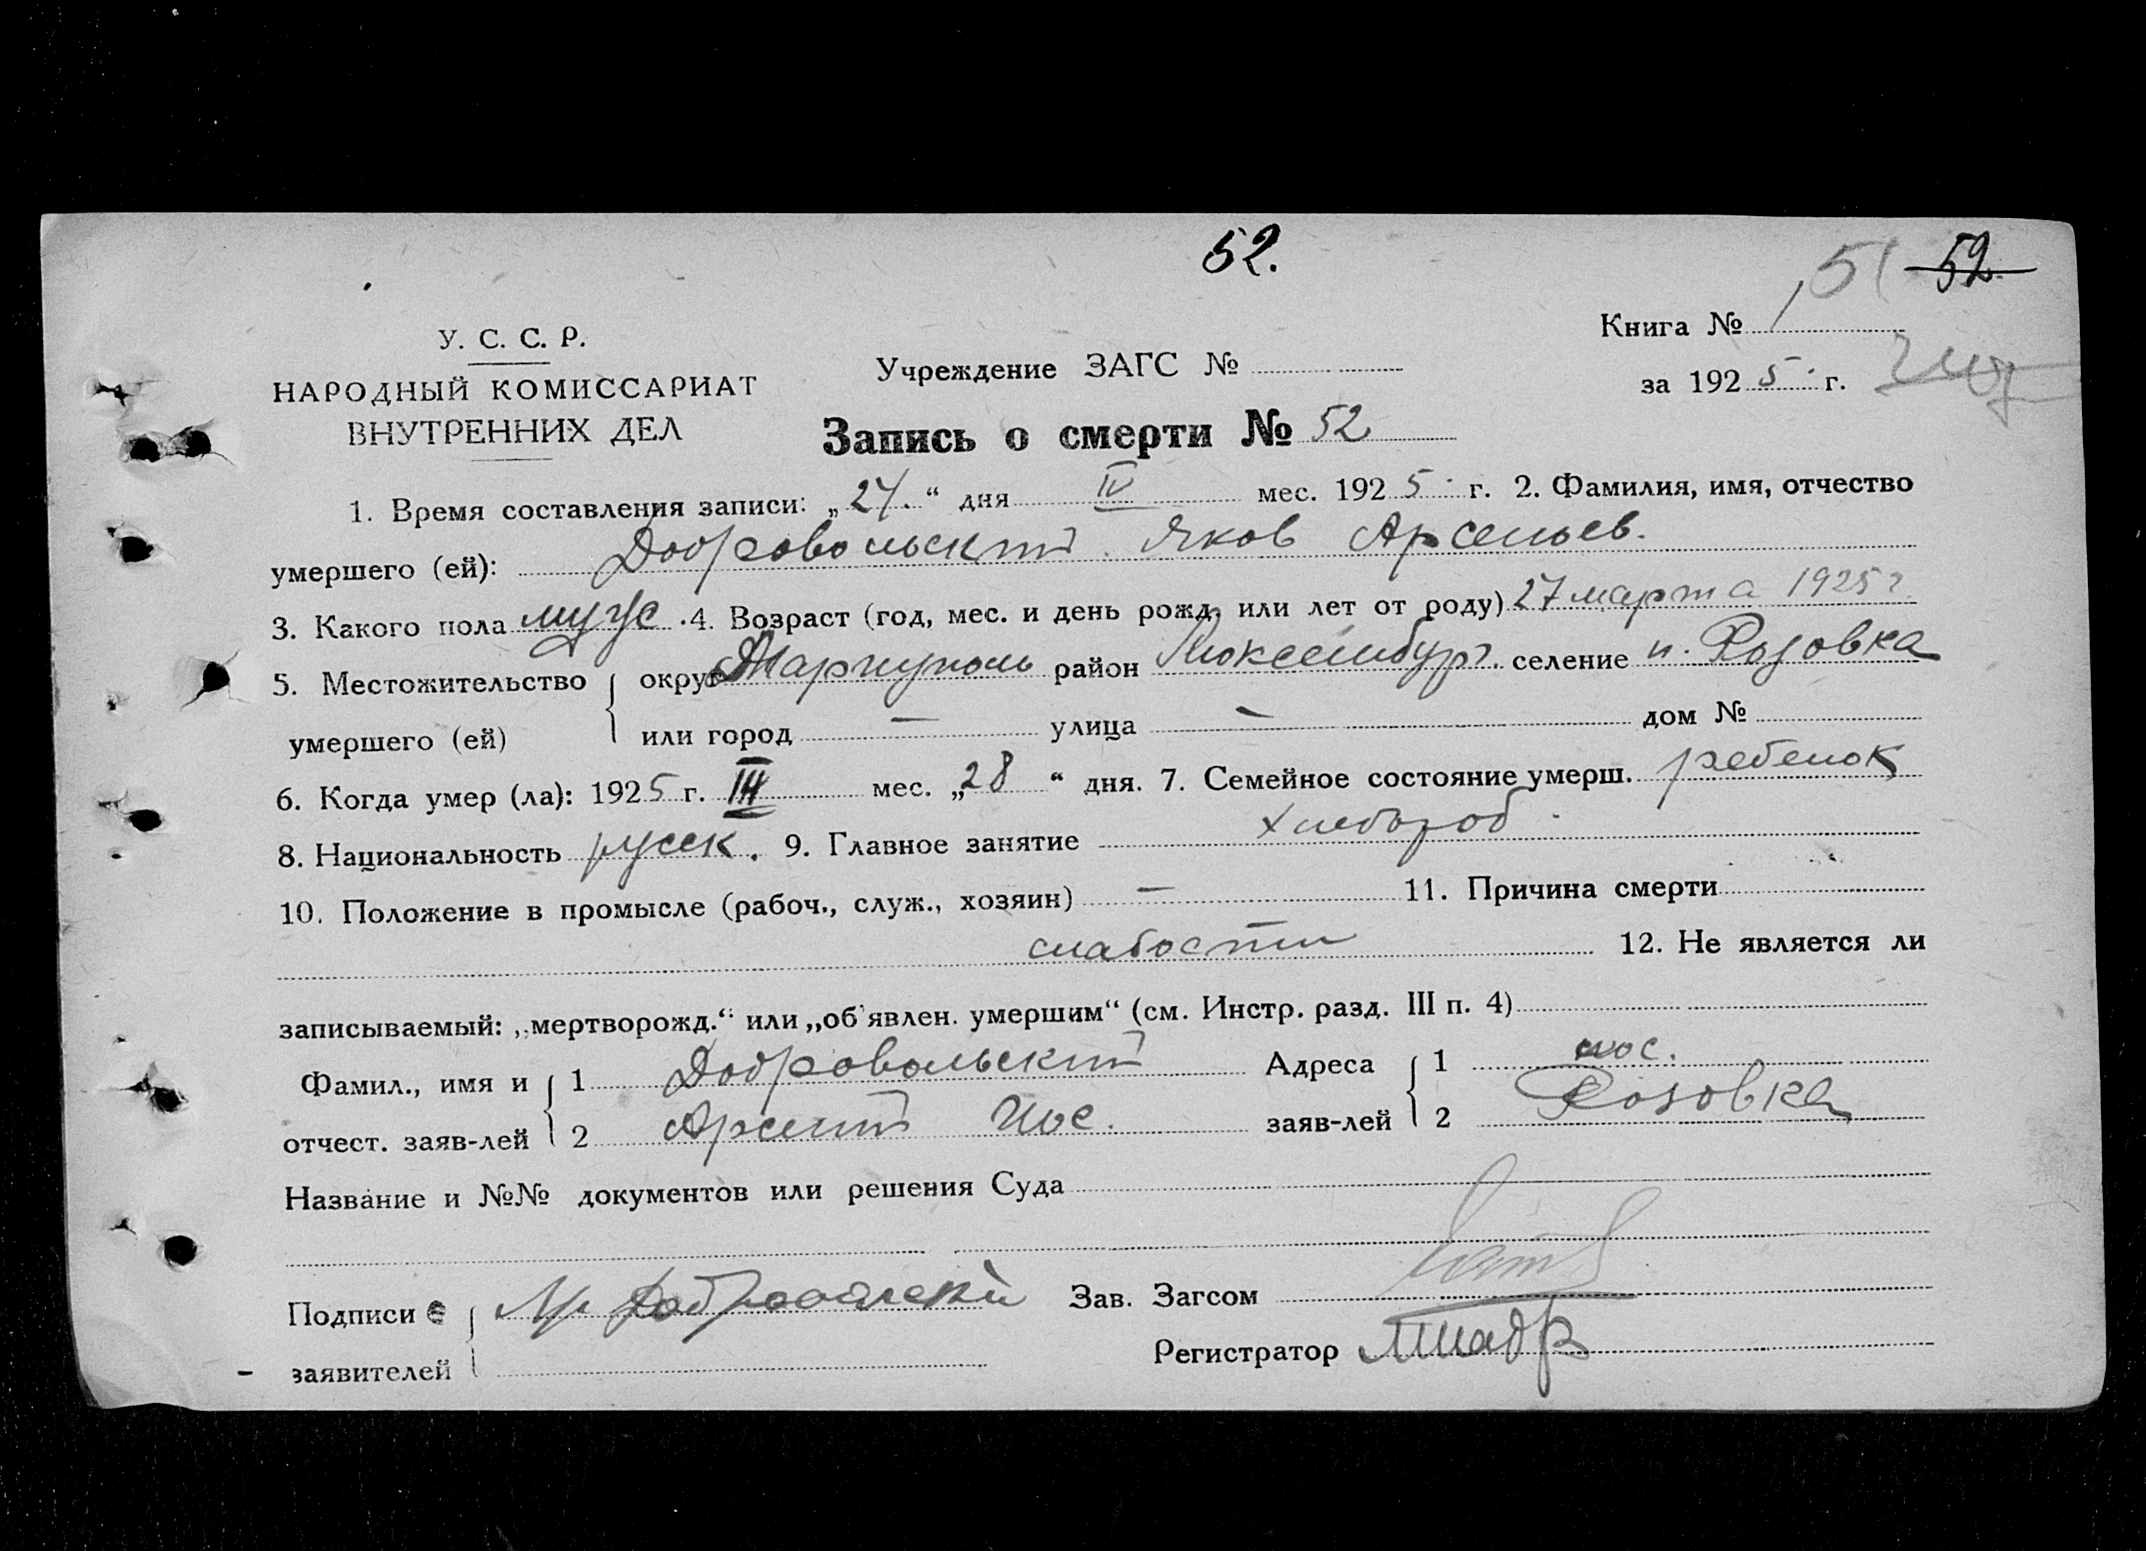 52.
51 52.
У. С. С. Р.
НАРОДНЫЙ КОМИССАРИАТ
ВНУТРЕННИХ ДЕЛ
Учреждение ЗАГС №
Книга № 1
за 1925 г.
Запись о смерти № 52
1. Время составления записи: „27.“ дня IV мес. 1925 г. 2. Фамилия, имя, отчество
умершего (ей): Добровольский Яков Арсеньев.
3. Какого пола муж 4. Возраст (год, мес. и день рожд. или лет от роду) 27 марта 1925 г.
5. Местожительство округ Мариуполь район Люксембург. селение п. Розовка
умершего (ей) или город — улица — дом №
6. Когда умер (ла): 1925 г. III мес. „28“ дня. 7. Семейное состояние умерш. ребенок
8. Национальность русск. 9. Главное занятие хлебороб
10. Положение в промысле (рабоч., служ., хозяин) — 11. Причина смерти
слабости 12. Не является ли
записываемый: „мертворожд.“ или „об'явлен. умершим“ (см. Инстр. разд. III п. 4)
Фамил., имя и 1 Добровольский Адреса 1 пос.
отчест. заяв-лей 2 Арсений Иос. заяв-лей 2 Розовка
Название и №№ документов или решения Суда
Подписи Ар Добровольски Зав. Загсом
заявителей Регистратор